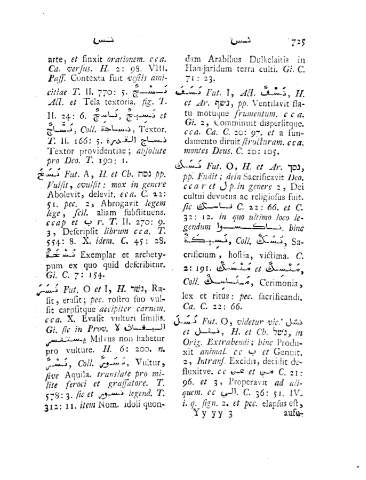 نسر نسى 725
arte, et finxit orationem. cca.
Ca. versus. H. 2: 98. VIII.
Pass. Contexta fuit vestis ami-
citiae T. II. 770: 5. نَسْجٌ
Act. et Tela textoria. fig. T.
II. 24: 6. نَسِيجٌ et
نَسَّاجٌ, Coll. نسّاجة, Textor.
T. II. 166: 5. نسّاج القدرة
Textor providentiae; absolute
pro Deo. T. 190: 1.
نَسَخَ Fut. A, H. et Cb. נסח pp.
Vulsit, evulsit: mox in genere
Abolevit, delevit. cca. C. 22:
51. pec. 2, Abrogavit legem
lege, scil. aliam substituens.
ccap et ب r. T. II. 270: 9.
3, Descripsit librum cca T.
554: 8. X. idem. C. 45: 28.
نُسْخَةٌ Exemplar et archety-
pum ex quo quid describitur.
Gi. C. 7: 154.
نَسَرَ Fut. O et I, H. נשר, Ra-
sit, erasit; pec. rostro suo vul-
sit carpsitque accipiter carnem.
cca. X. Evasit vulturi similis.
Gi. sic in Prov. البغاث لا
يستنسر Milvus non habetur
pro vulture. H. 6: 200. n.
نَسْرٌ, Coll. نُسُورٌ, Vultur,
sive Aquila. translate pro mi-
lite feroci et grassatore. T.
578: 3. sic et نسور legend. T.
312: 11. item Nom. idoli quon-
dam Arabibus Dulkelaitis in
Hamjaridum terra culti. Gi. C.
71: 23.
نَسَفَ Fut. I, Act. نَسْفٌ, H.
et Ar. נשף pp. Ventilavit fla-
tu motuque frumentum. cca.
Gi. 2, Comminuit disperlitque.
cca. Ca. C. 20: 97. et a fun-
damento diruit structuram. cca.
montes Deus. C. 20: 105.
نَسَكَ Fut. O, H. et Ar. נסך,
pp. Fudit; dein Sacrificavit Deo.
cca r et ل p. in genere 2, Dei
cultui devenus ac religiosus fuit.
sic ناسك C. 22: 66. et C.
32: 12. in quo ultimo loco le-
gendum ناكسوا. hinc
نُسُكٌ, Coll. نَسِيكَةٌ, Sa-
crificium, hostia, victima. C.
2: 191. مَنْسَكٌ et مَنْسِكٌ,
Coll. مناسك, Cerimonia,
lex et ritus: pec. sacrificandi.
Ca. C. 22: 66.
نَسَلَ Fut. O, videtur vic. نشل
et نثل, H. et Cb. נשל, in
Orig. Extrahendi; hinc Produ-
xit animal. cc ب et Genuit.
2, Intrans. Excidit, decidit de-
fluxitve. cc عن et من C. 21:
96. et 3, Properavit ad ali-
quem. cc الى C. 36: 51. IV.
i. q. sign. 2. et pec. elapsus est,
Y y y y 3 aufu-